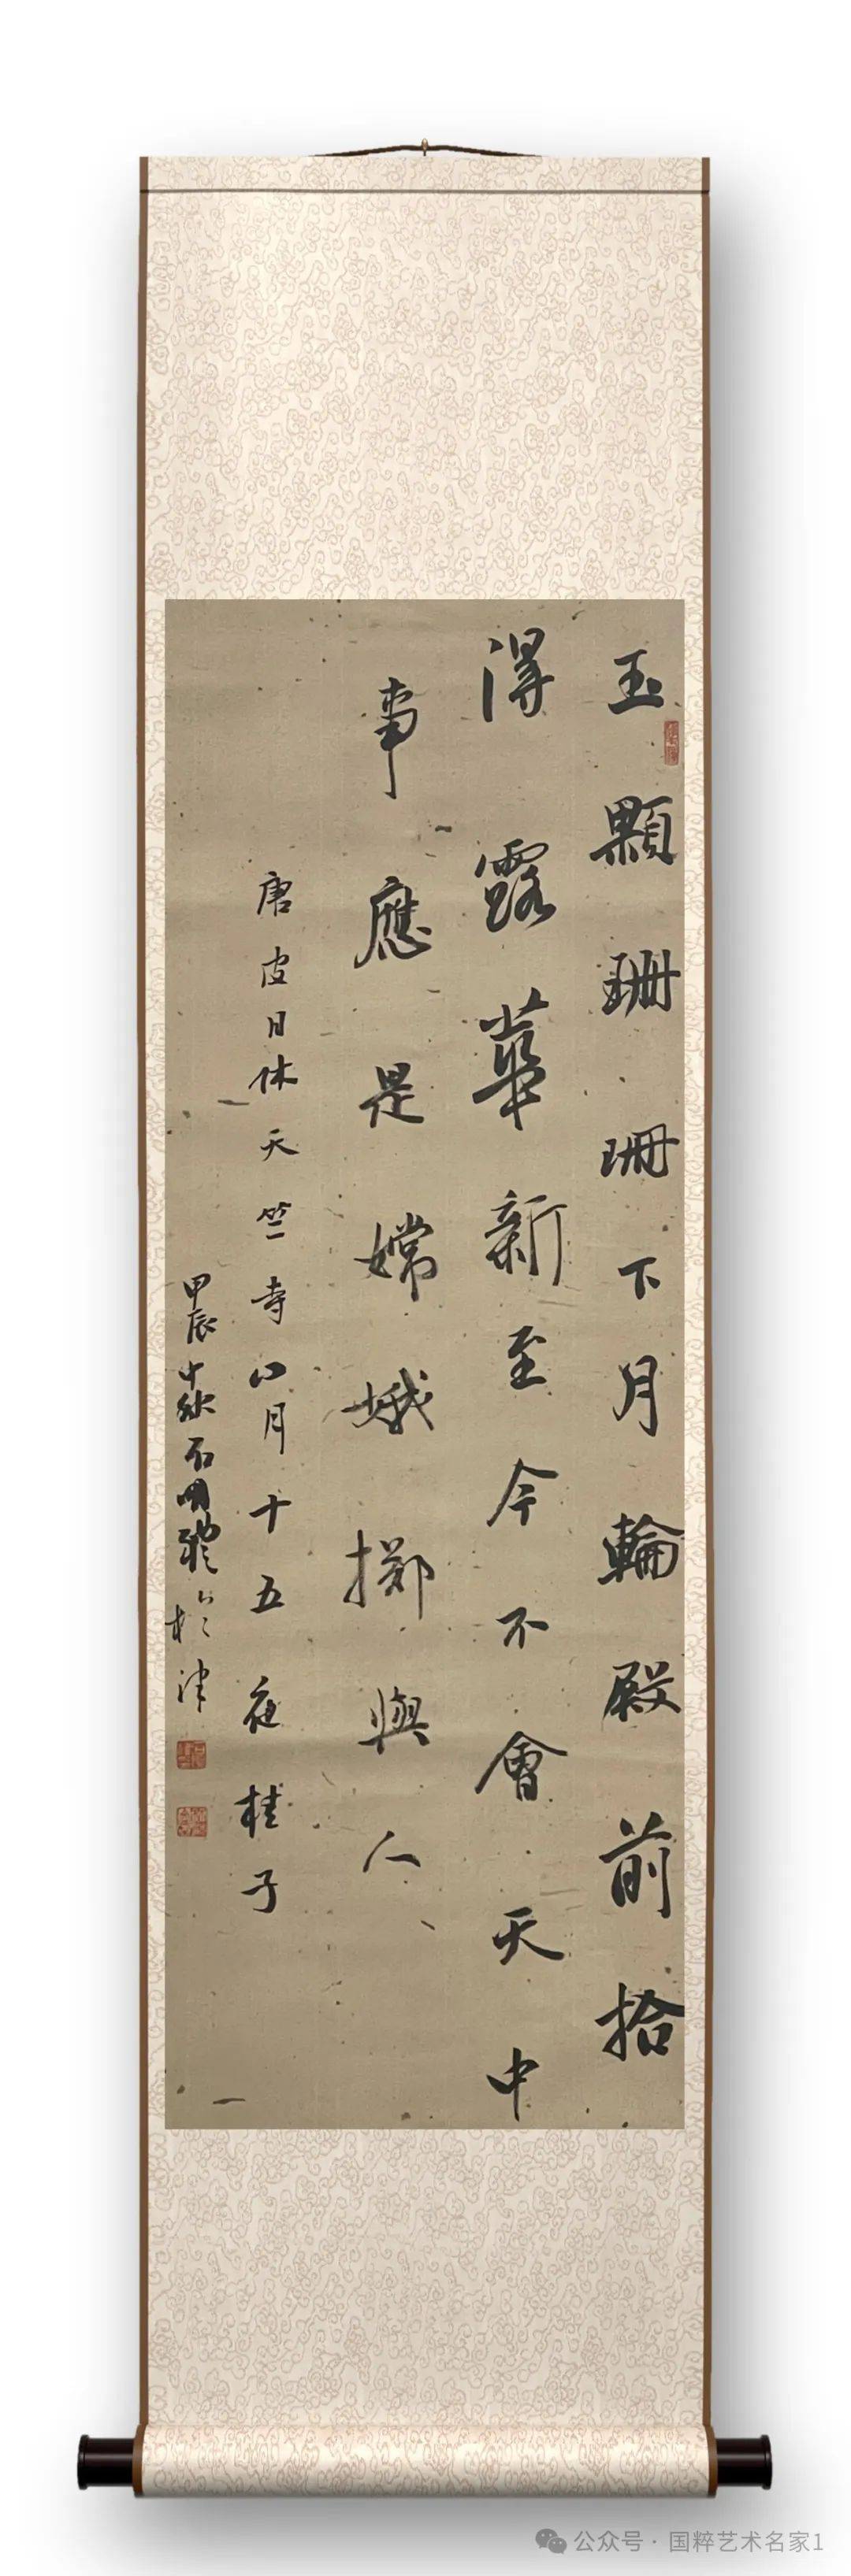 玉顆珊珊下月輪殿前拾
得露華新至今不會天中
事應是嫦娥擲與人
唐皮日休天竺寺八月十五夜桂子
甲辰中秋石明聽於津
公众号·国粹艺术名家1